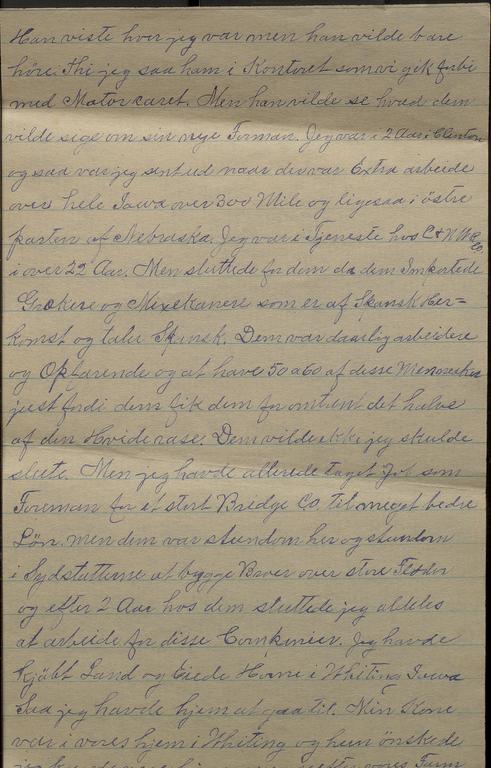 Han viste hvor jeg var men han vilde bare
höre. Thi jeg saa ham i Kontoret som vi gik forbi
med Motor caret. Men han vilde se hvad dem
vilde sige om sin nye Forman. Jeg var i 2 Aar i Clinton
og saa var jeg sent ud naar der var Extra arbeide
over hele Iowa over 300 Mile og ligesaa i östre
parten af Nebraska. Jeg var i Tjeneste hos C & N W Co
i over 22 Aar. Men sluttede for dem da dem Importede
Grækere og Mexekanere som er af Spansk Her-
komst og taler Spansk. Dem var daarlig arbeidere
og Opfarende og at have 50 a 60 af disse Mennesker
just fordi dem fik dem for omtrent det halve
af den Hvide rase. Dem vilde ikke jeg skulde
slutte. Men jeg havde allerede taget Job som
Foreman for et stort Bridge Co. til meget bedre
Lön. men dem var stundom her og stundom
i Sydstatterne at bygge Broer over store Floder
og efter 2 Aar hos dem sluttede jeg aldeles
at arbeide for disse Companier. Jeg havde
kjöbt Land og Eiede Home i Whiting Iowa
Saa jeg havde hjem at gaa til. Min Kone
var i vores hjem i Whiting og hun önskede
vores Farm